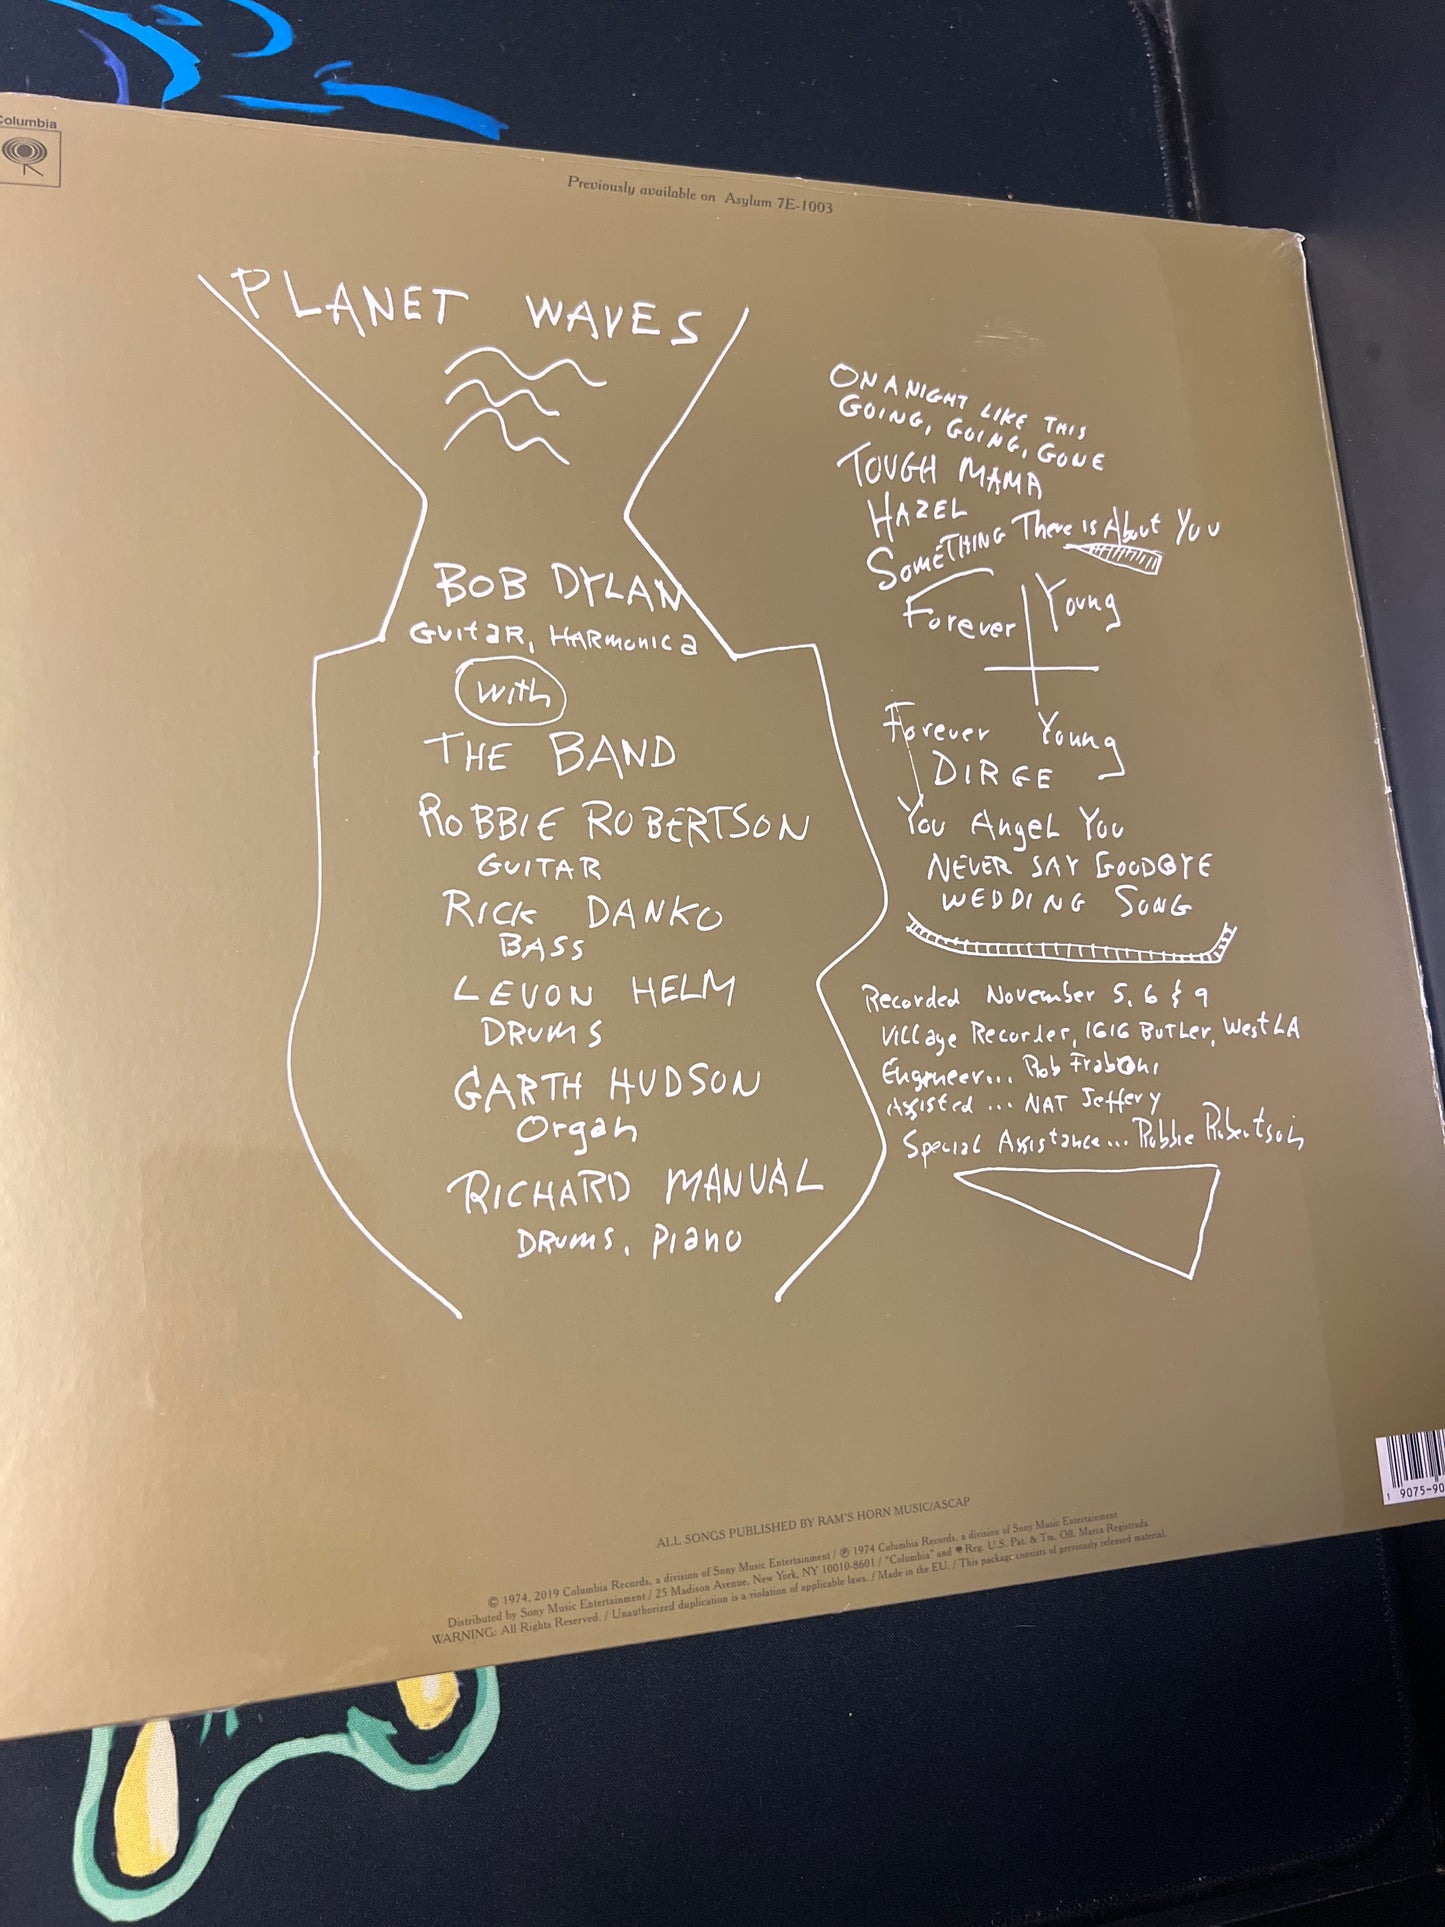 Columbia
Previously available on Asylum 7E-1003
PLANET WAVES
BOB DYLAN
GUITAR, HARMONICA
With
THE BAND
ROBBIE ROBERTSON
GUITAR
RICK DANKO
BASS
LEVON HELM
DRUMS
GARTH HUDSON
Organ
RICHARD MANUAL
DRUMS, PIANO
ON A NIGHT LIKE THIS
GOING, GOING, GONE
TOUGH MAMA
HAZEL
SOMETHING There is About You
Forever Young
Forever Young
DIRGE
You Angel You
NEVER SAY GOODBYE
WEDDING SONG
Recorded November 5, 6 & 9
Village Recorder, 1616 BUTLER, West LA
Engineer... Rob Fraboni
Assisted ... NAT Jeffery
Special Assistance... Robbie Robertson
1 9075-90
ALL SONGS PUBLISHED BY RAM'S HORN MUSIC/ASCAP
© 1974, 2019 Columbia Records, a division of Sony Music Entertainment / ℗ 1974 Columbia Records, a division of Sony Music Entertainment
Distributed by Sony Music Entertainment / 25 Madison Avenue, New York, NY 10010-8601 / "Columbia" and Reg. U.S. Pat. & Tm. Off. Marca Registrada.
WARNING: All Rights Reserved. / Unauthorized duplication is a violation of applicable laws. / Made in the EU. / This package consists of previously released material.